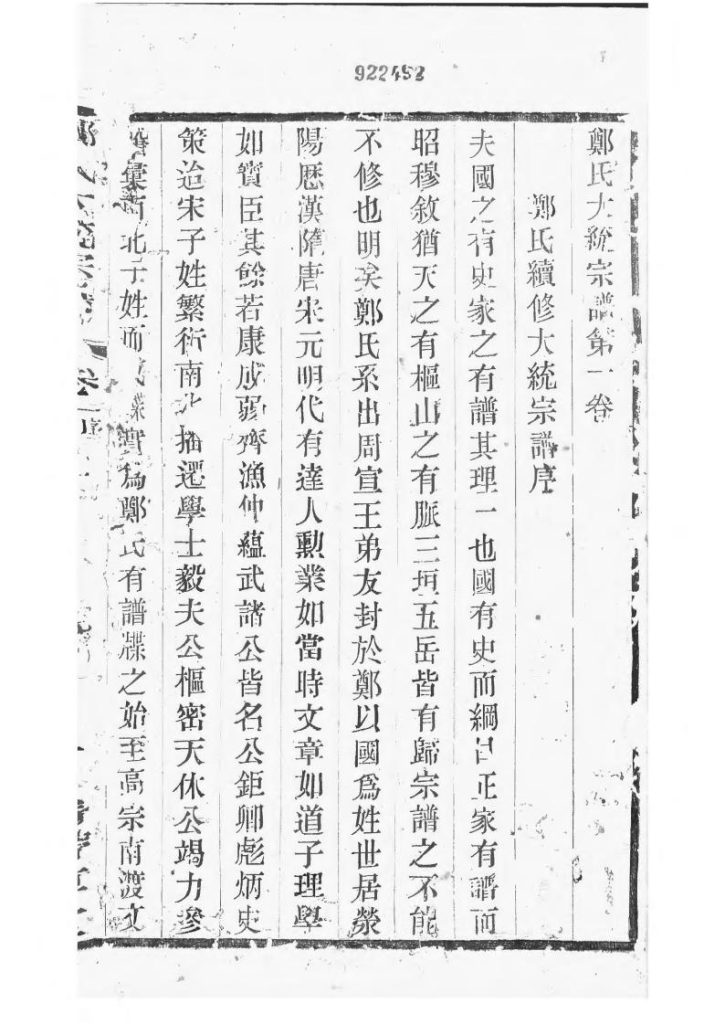 922452
鄭氏大統宗譜第一卷
鄭氏續修大統宗譜序
夫國之有史家之有譜其理一也國有史而綱常正家有譜而
昭穆敘猶天之有樞山之有脈三垣五岳皆有歸宗譜之不能
不修也明矣鄭氏系出周宣王弟友封於鄭以國爲姓世居滎
陽歷漢隋唐宋元明代有達人勳業如當時文章如道子理學
如賓臣其餘若康成弱齊漁仲蘊武諸公皆名公鉅卿彪炳史
策迨宋子姓繁衍南北播遷學士毅夫公樞密天休公竭力參
彙南北子姓而 實爲鄭氏有譜牒之始至高宗南渡文
卷一 序